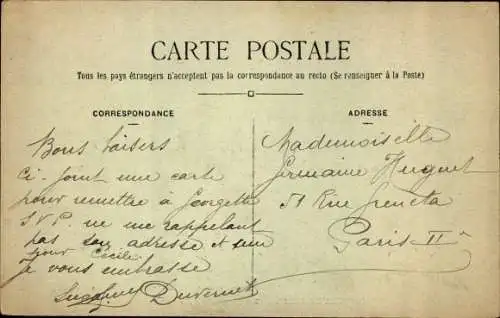 CARTE POSTALE
Tous les pays étrangers n'acceptent pas la correspondance au recto (Se renseigner à la Poste)
CORRESPONDANCE
ADRESSE
Bons baisers
Ci-joint une carte
pour remettre à Georgette
S.V.P. ne me rappelant
pas son adresse et
Cécile
je vous embrasse
Duvernet
Mademoiselle
Germaine Huguet
51 Rue Greneta
Paris II